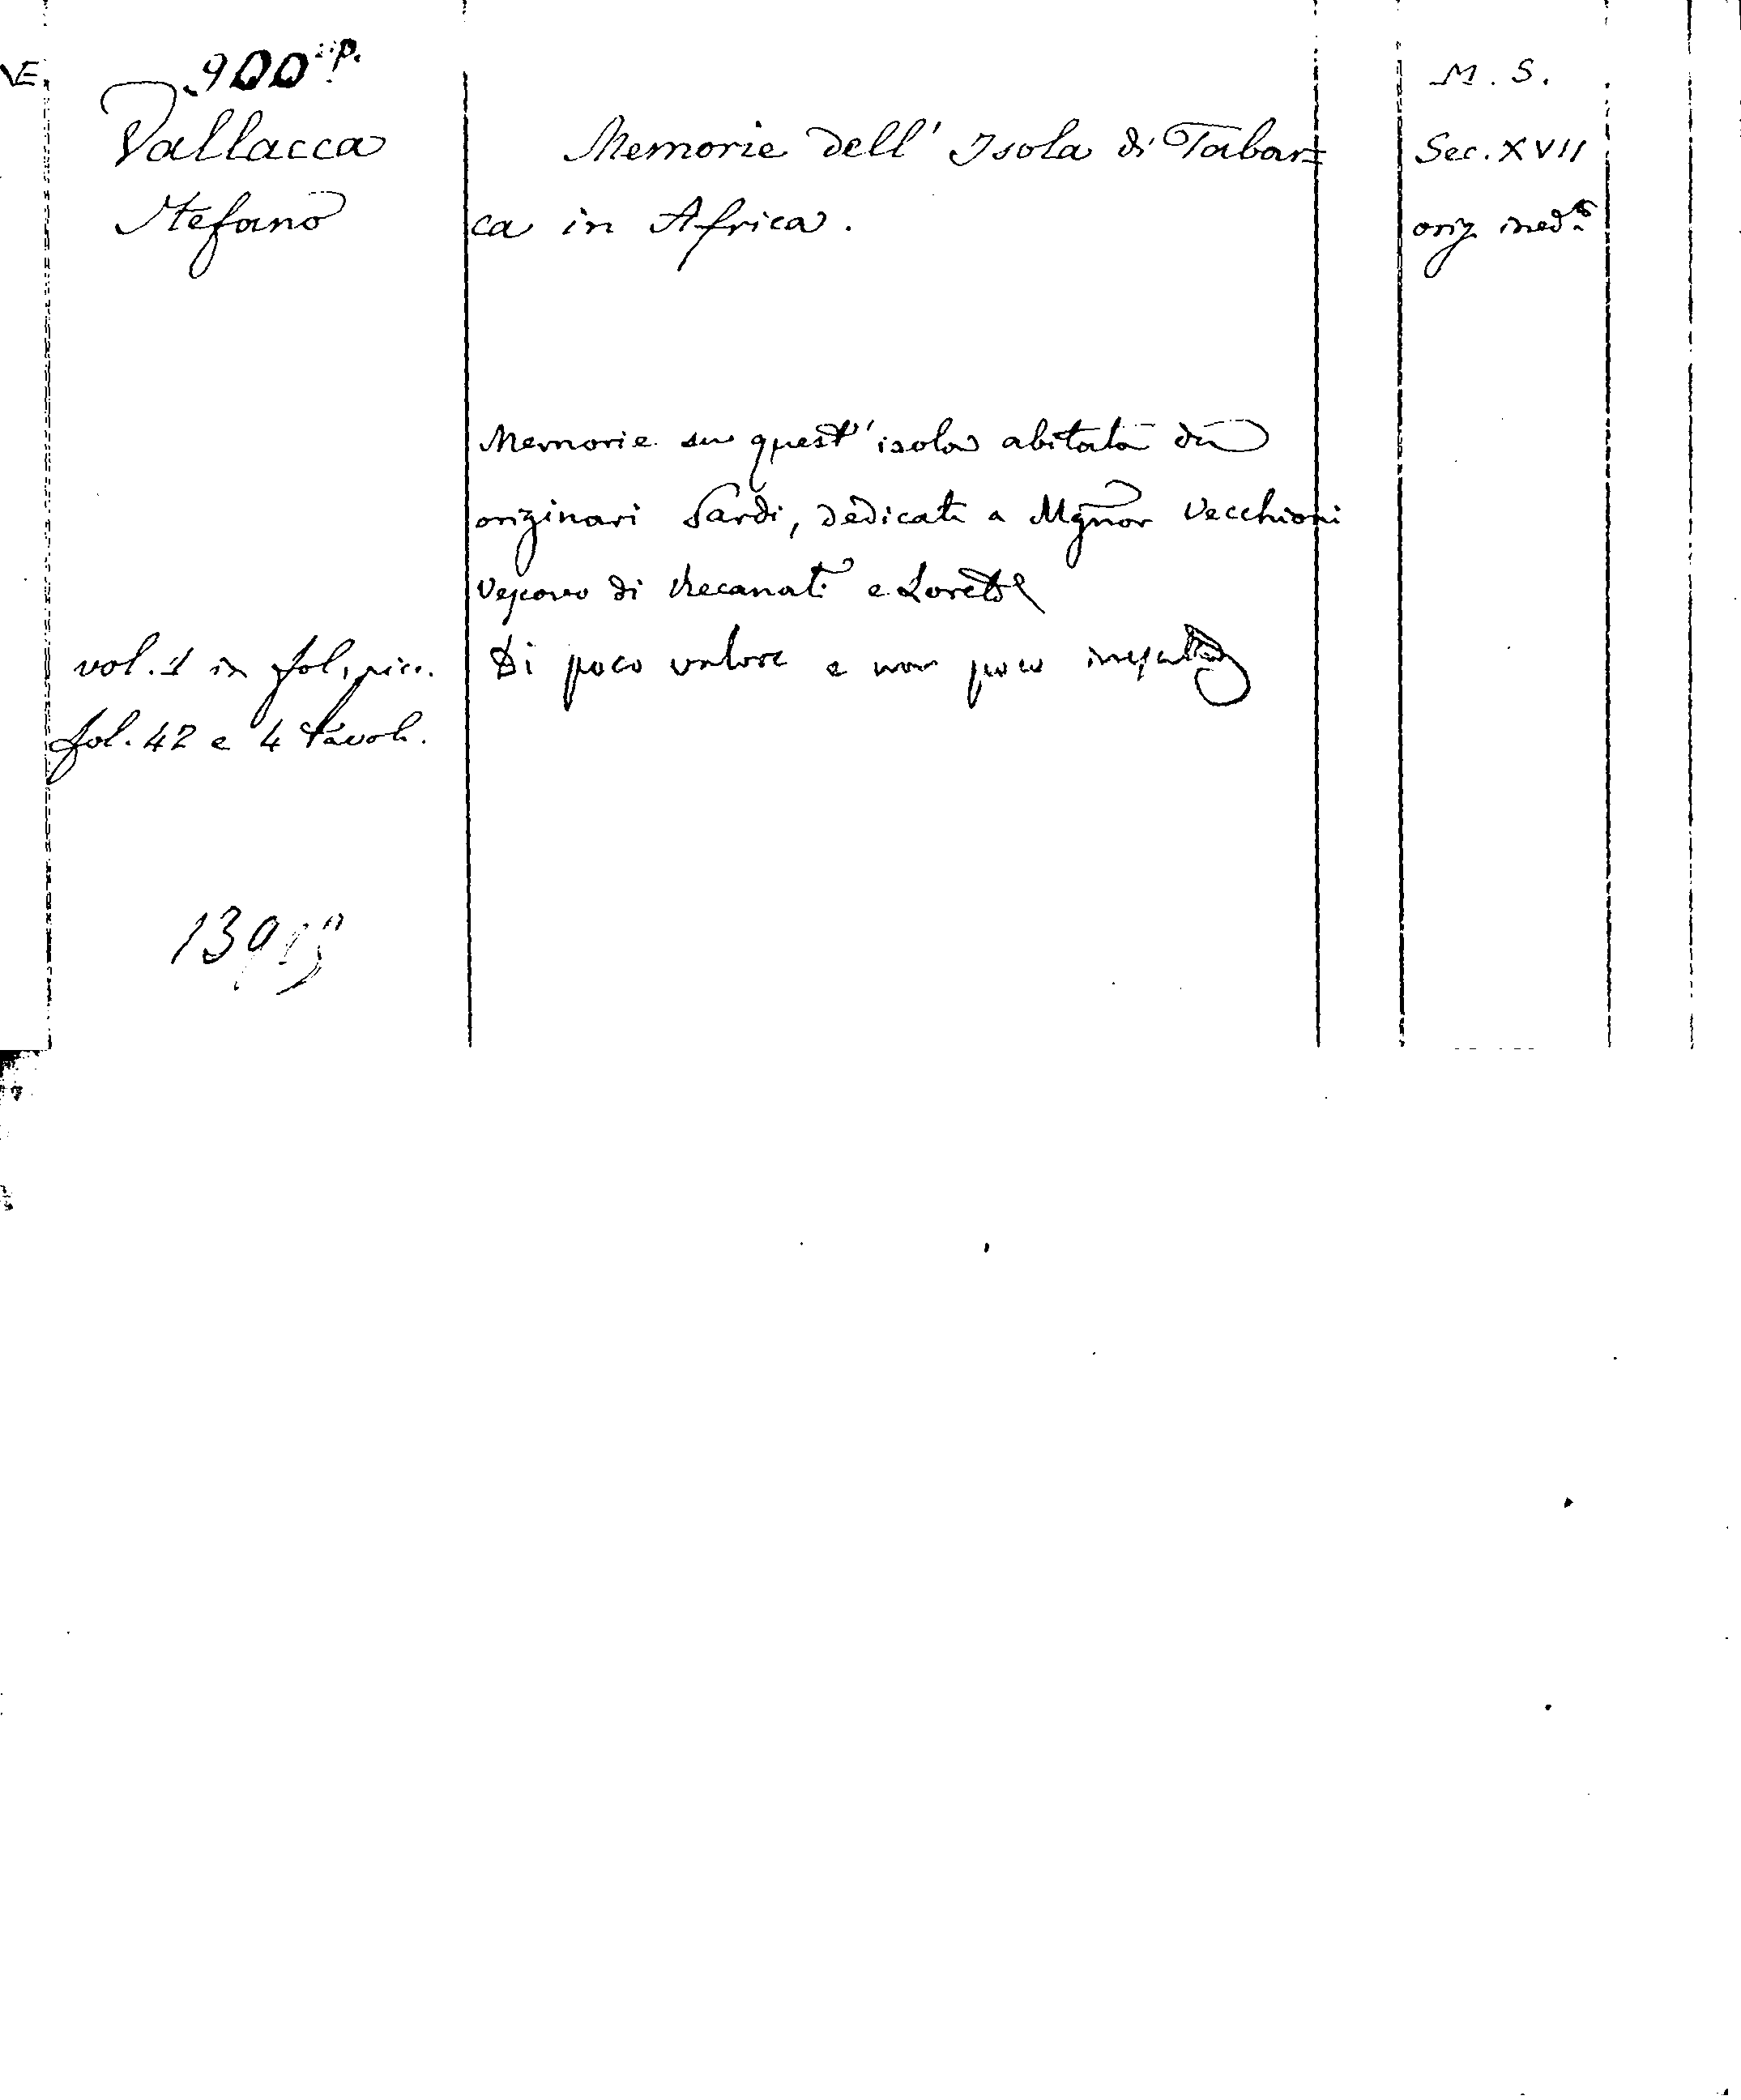 900
Vallacca
Stefano
vol. 1 in fol. picc.
fol. 42 e 4 tavole.
Memorie dell' Isola di Tabar=
ca in Africa.
Memorie su quest' isola abitata da
originari Sardi, dedicati a Mgnor Vecchioni
Vescovo di Recanati e Loreto
Di poco valore e non poco
M. S.
Sec. XVII
orig ined.to